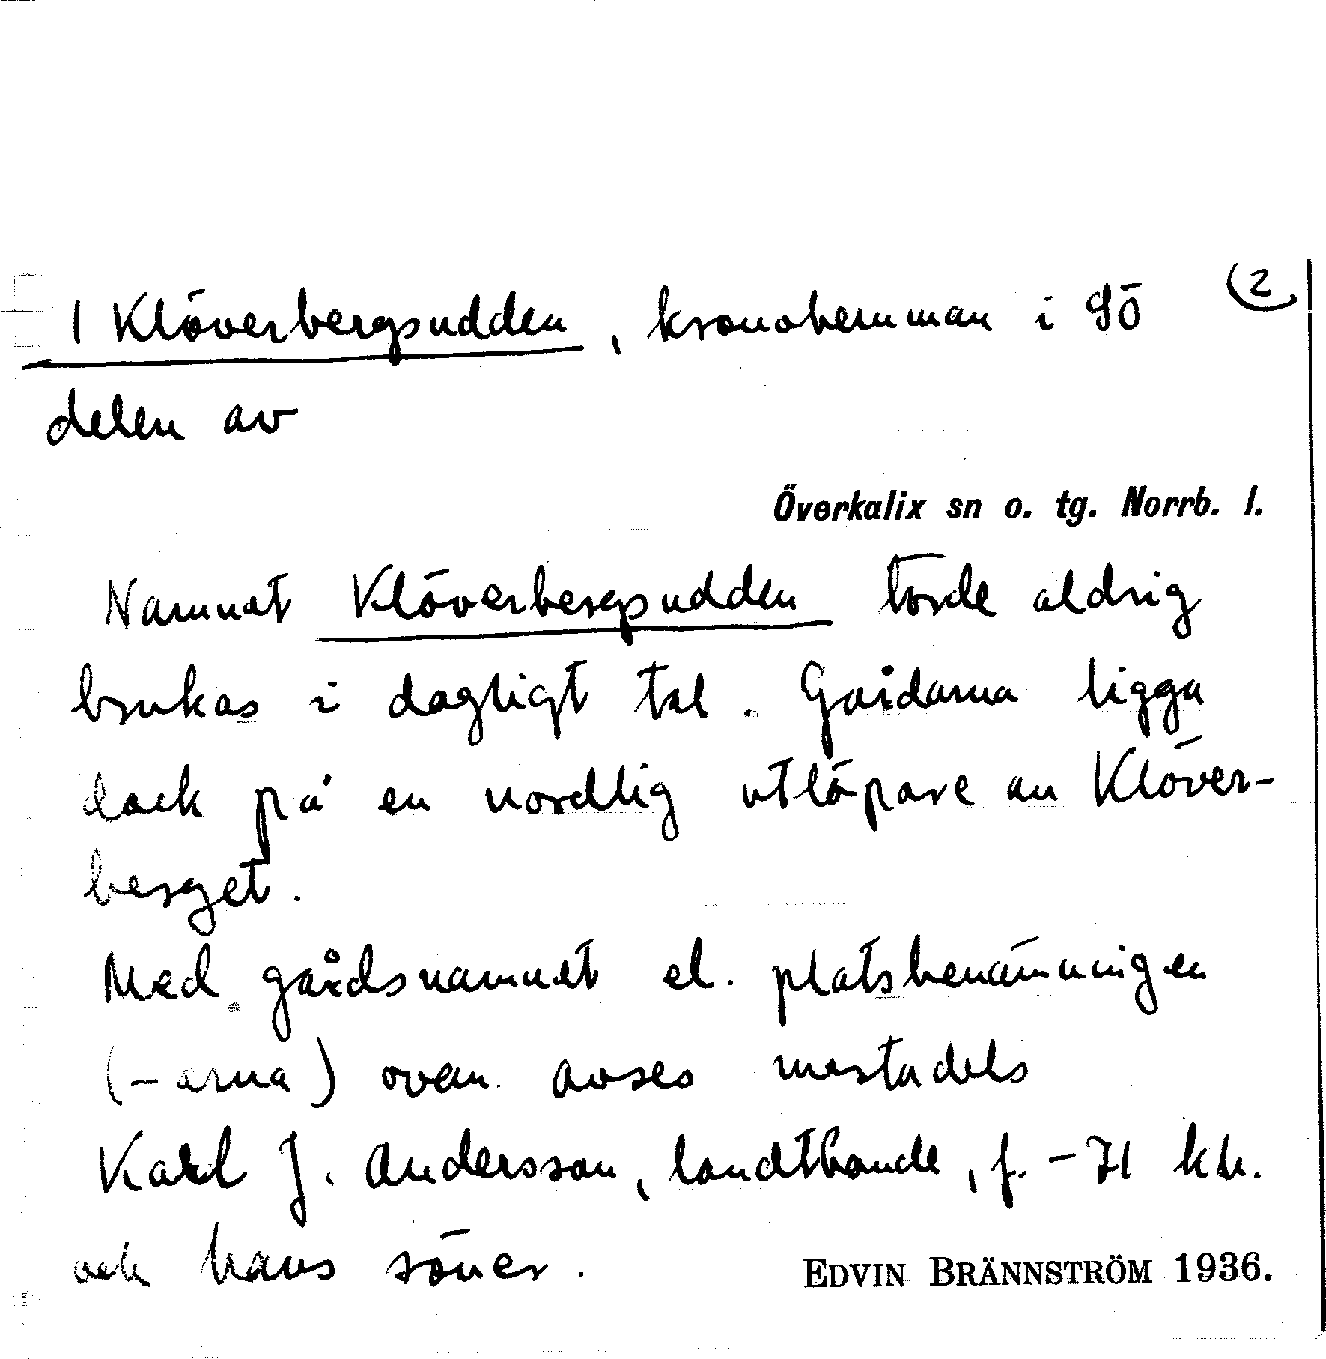 (2
1 Klöverbergsudden, kronohemman i SÖ
delen av
Överkalix sn o. tg. Norrb. l.
Namnet Klöverbergsudden torde aldrig
brukas i dagligt tal. Gårdarna ligga
dock på en nordlig utlöpare av Klöver-
berget.
Med gårdsnamnet el. platsbenämningen
(-arna) ovan avses mestadels
Karl J. Andersson, landtbande, f. -71 kh.
och hans söner.
EDVIN BRÄNNSTRÖM 1936.